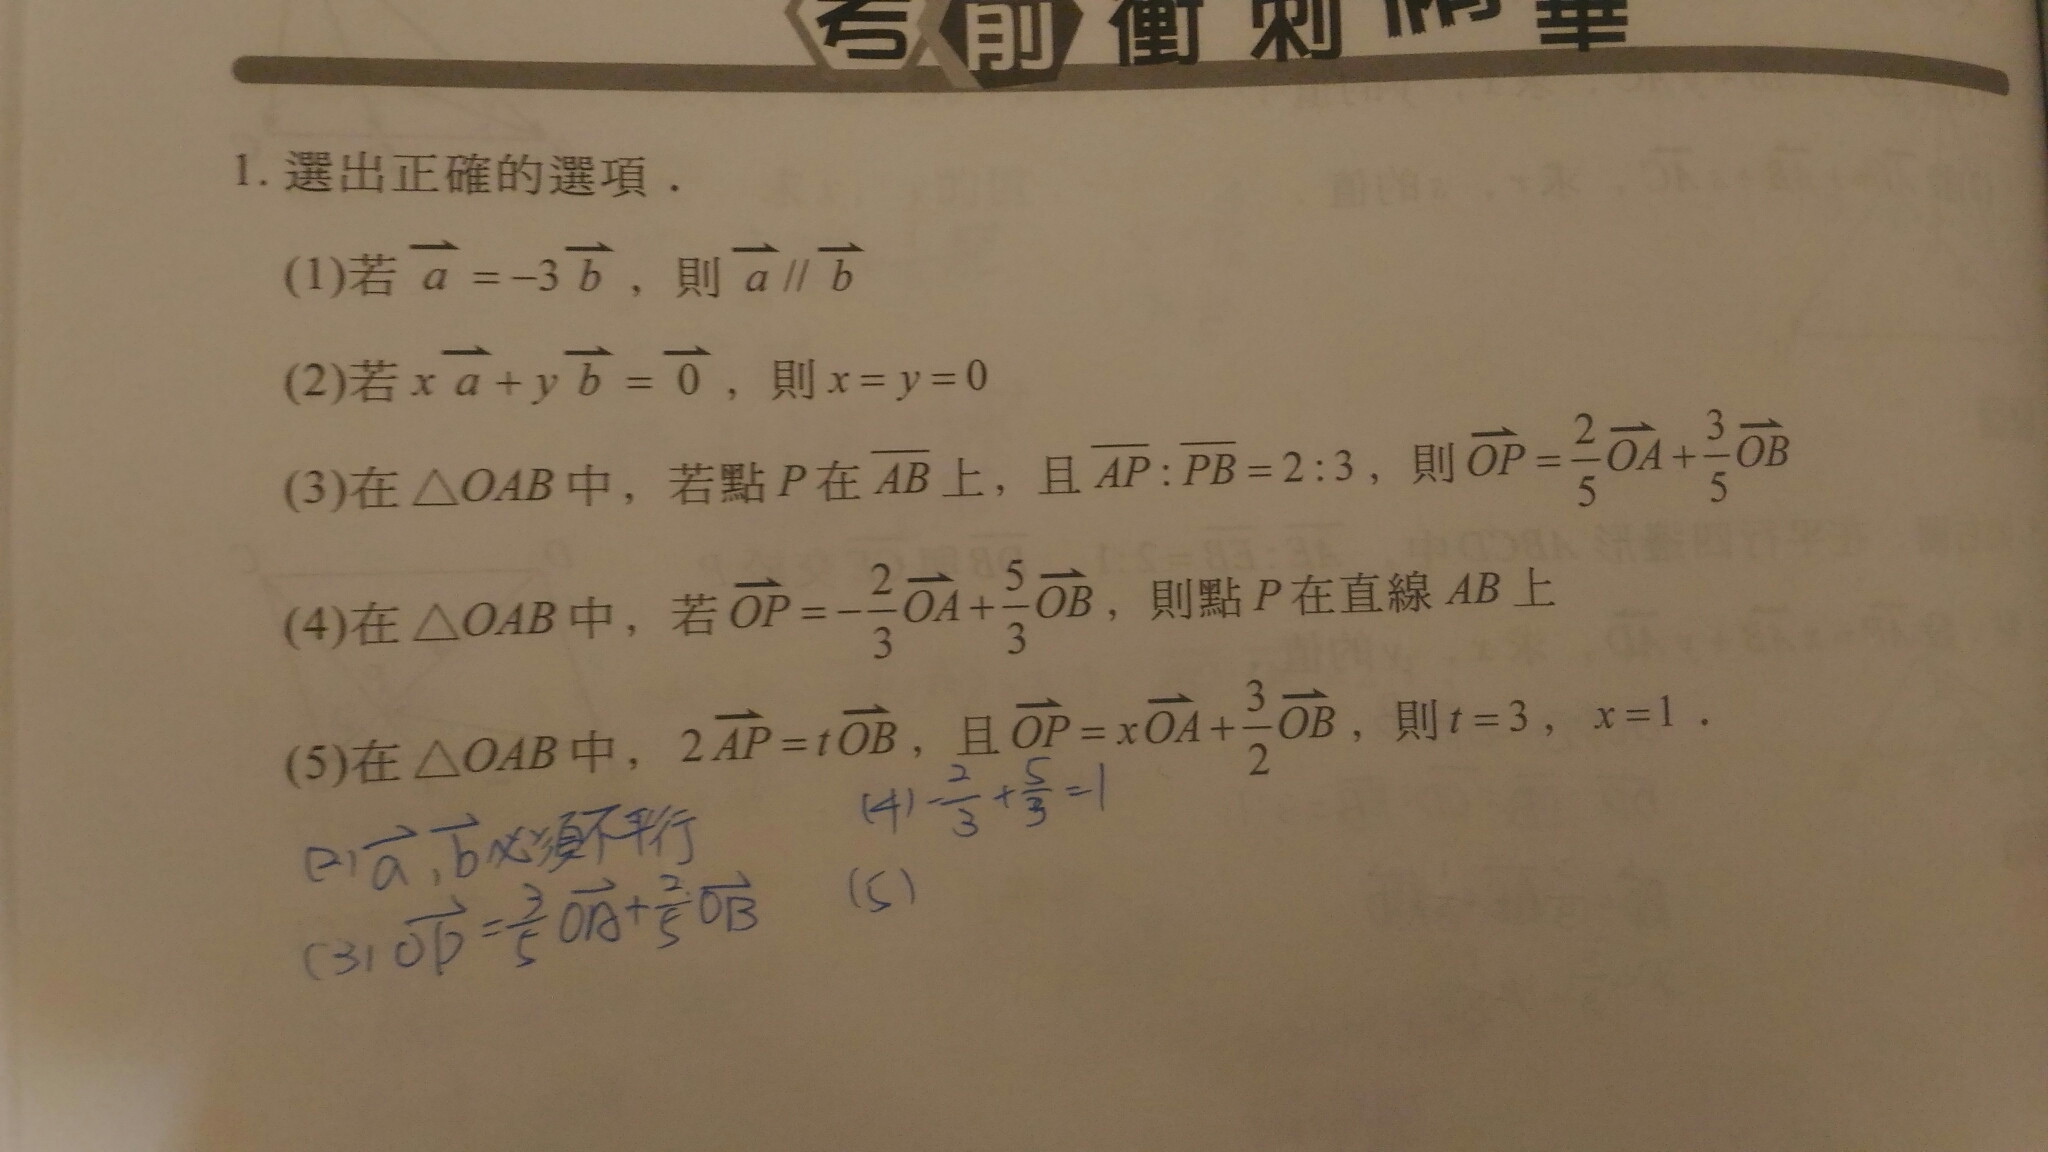 考前衝刺精華
1. 選出正確的選項．
(1)若 a⃗ = −3 b⃗ ，則 a⃗ // b⃗
(2)若 x a⃗ + y b⃗ = 0⃗ ，則 x = y = 0
(3)在 △OAB 中，若點 P 在 A̅B̅ 上，且 A̅P̅ : P̅B̅ = 2 : 3，則 OP⃗ = 2/5 OA⃗ + 3/5 OB⃗
(4)在 △OAB 中，若 OP⃗ = −2/3 OA⃗ + 5/3 OB⃗，則點 P 在直線 AB 上
(5)在 △OAB 中，2 AP⃗ = t OB⃗，且 OP⃗ = x OA⃗ + 3/2 OB⃗，則 t = 3，x = 1．
(2) a⃗, b⃗ 必須不平行
(3) OP⃗ = 3/5 OA⃗ + 2/5 OB⃗
(4) -2/3 + 5/3 = 1
(5)